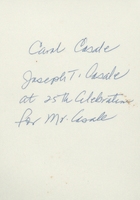 Carol Casale
Joseph T. Casale
at 25th Celebration
for Mr. Casale